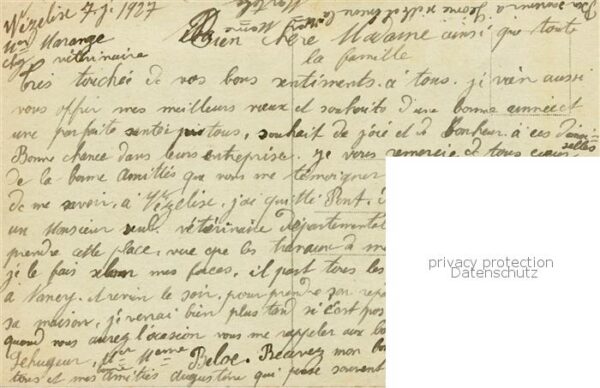 Vézelise 7. j. 1927
Mr Marange
vétérinaire
Bien chère Madame ainsi que toute
la famille
très touchée de vos bons sentiments. à tous. je vien aussi
vous offrir mes meilleurs vœux et souhaits d'une bonne année et
une parfaite santé pour tous, souhait de joie et de bonheur. à ces demoiselles
Bonne chance dans leurs entreprise. je vous remercie de tous cœur
de la bonne amitiés que vous me témoigner
de me savoir. à Vézelise, j'ai quitté Pont.
un Monsieur seul. vétérinaire départemental
prendre cette place, vue que les travaux à
je le fais selon mes forces, il part tous les
à Nancy. revin le soir. pour prendre son
sa maison, j'i verrai bien plus tard si c'est pas
quand vous aurez l'ocasion vous me rappeler aux
Mme Beloe. Recevez mon
tous et mes amitiés augustine qui pense souvent
privacy protection
Datenschutz